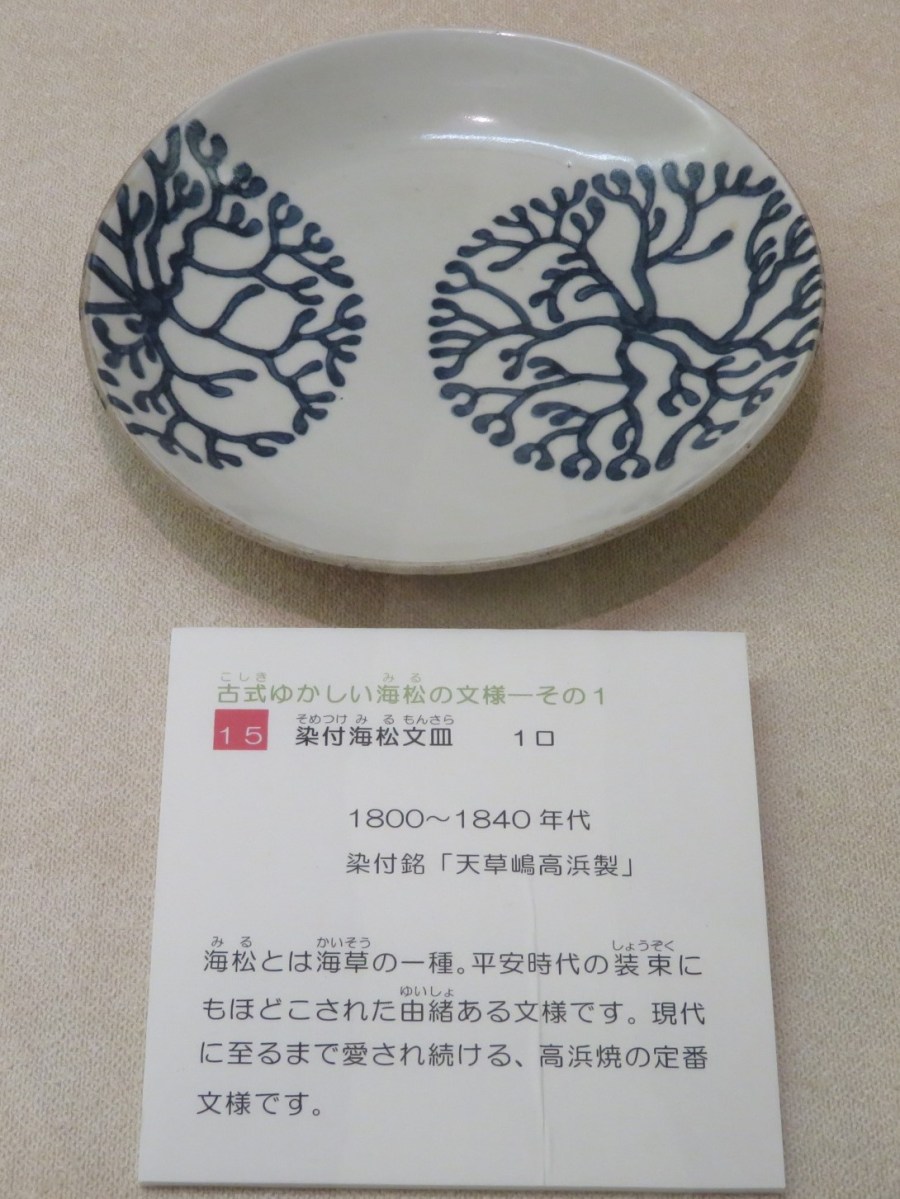 古式ゆかしい海松の文様―その1
15 染付海松文皿 1口
1800～1840年代
染付銘「天草嶋高浜製」
海松とは海草の一種。平安時代の装束に
もほどこされた由緒ある文様です。現代
に至るまで愛され続ける、高浜焼の定番
文様です。